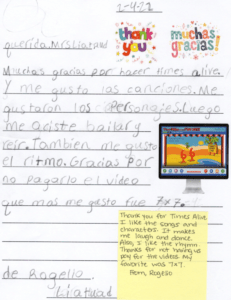 2-4-22
thank you
¡muchas gracias!
querido, Mrs Liatuad
Muchas gracias por hacer times alive.
Y me gusto las canciones. Me
gustaron los Personajes. Luego
me aciste bailar y
reir. Tambien me gusto
el ritmo. Gracias Por
no pagarlo el video
que mas me gusto fue 7x7.
Thank you for Times Alive
I like the songs and
characters. It makes
me laugh and dance.
Also, I like the rhythm.
Thanks for not having us
pay for the videos. My
favorite was 7x7.
From, Rogeso
de Rogelio
Liatuad